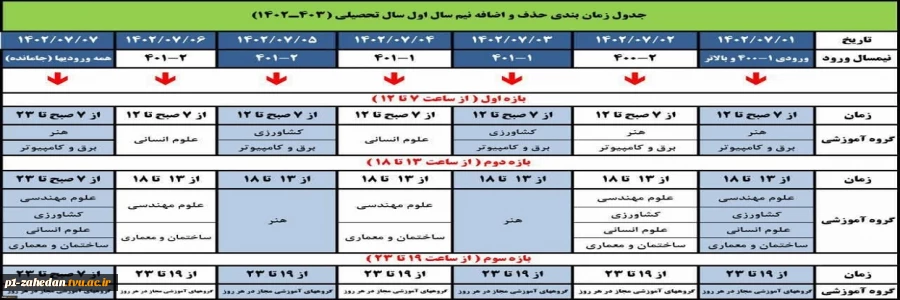 جدول زمان بندی حذف و اضافه نیم سال اول سال تحصیلی (۴۰۳-۱۴۰۲)
تاریخ ۱۴۰۲/۰۷/۰۱ ۱۴۰۲/۰۷/۰۲ ۱۴۰۲/۰۷/۰۳ ۱۴۰۲/۰۷/۰۴ ۱۴۰۲/۰۷/۰۵ ۱۴۰۲/۰۷/۰۶ ۱۴۰۲/۰۷/۰۷
نیمسال ورود ورودی ۱-۴۰۰ و بالاتر ۲-۴۰۰ ۱-۴۰۱ ۱-۴۰۱ ۲-۴۰۱ ۲-۴۰۱ همه ورودیها (جامانده)
بازه اول ( از ساعت ۷ تا ۱۲ )
زمان از ۷ صبح تا ۱۲ از ۷ صبح تا ۱۲ از ۷ صبح تا ۱۲ از ۷ صبح تا ۱۲ از ۷ صبح تا ۱۲ از ۷ صبح تا ۱۲ از ۷ صبح تا ۲۳
گروه آموزشی هنر هنر کشاورزی علوم انسانی کشاورزی علوم انسانی هنر
برق و کامپیوتر برق و کامپیوتر برق و کامپیوتر برق و کامپیوتر برق و کامپیوتر
بازه دوم ( از ساعت ۱۳ تا ۱۸ )
زمان از ۱۳ تا ۱۸ از ۱۳ تا ۱۸ از ۱۳ تا ۱۸ از ۱۳ تا ۱۸ از ۱۳ تا ۱۸ از ۱۳ تا ۱۸ از ۷ صبح تا ۲۳
گروه آموزشی علوم مهندسی علوم مهندسی هنر علوم مهندسی هنر علوم مهندسی علوم مهندسی
کشاورزی کشاورزی کشاورزی
علوم انسانی علوم انسانی علوم انسانی
ساختمان و معماری ساختمان و معماری ساختمان و معماری ساختمان و معماری ساختمان و معماری
بازه سوم ( از ساعت ۱۹ تا ۲۳ )
زمان از ۱۹ تا ۲۳ از ۱۹ تا ۲۳ از ۱۹ تا ۲۳ از ۱۹ تا ۲۳ از ۱۹ تا ۲۳ از ۱۹ تا ۲۳ از ۷ صبح تا ۲۳
گروه آموزشی گروههای آموزشی مجاز در هر روز گروههای آموزشی مجاز در هر روز گروههای آموزشی مجاز در هر روز گروههای آموزشی مجاز در هر روز گروههای آموزشی مجاز در هر روز گروههای آموزشی مجاز در هر روز گروههای آموزشی مجاز در هر روز
p1-zahedan.tvu.ac.ir